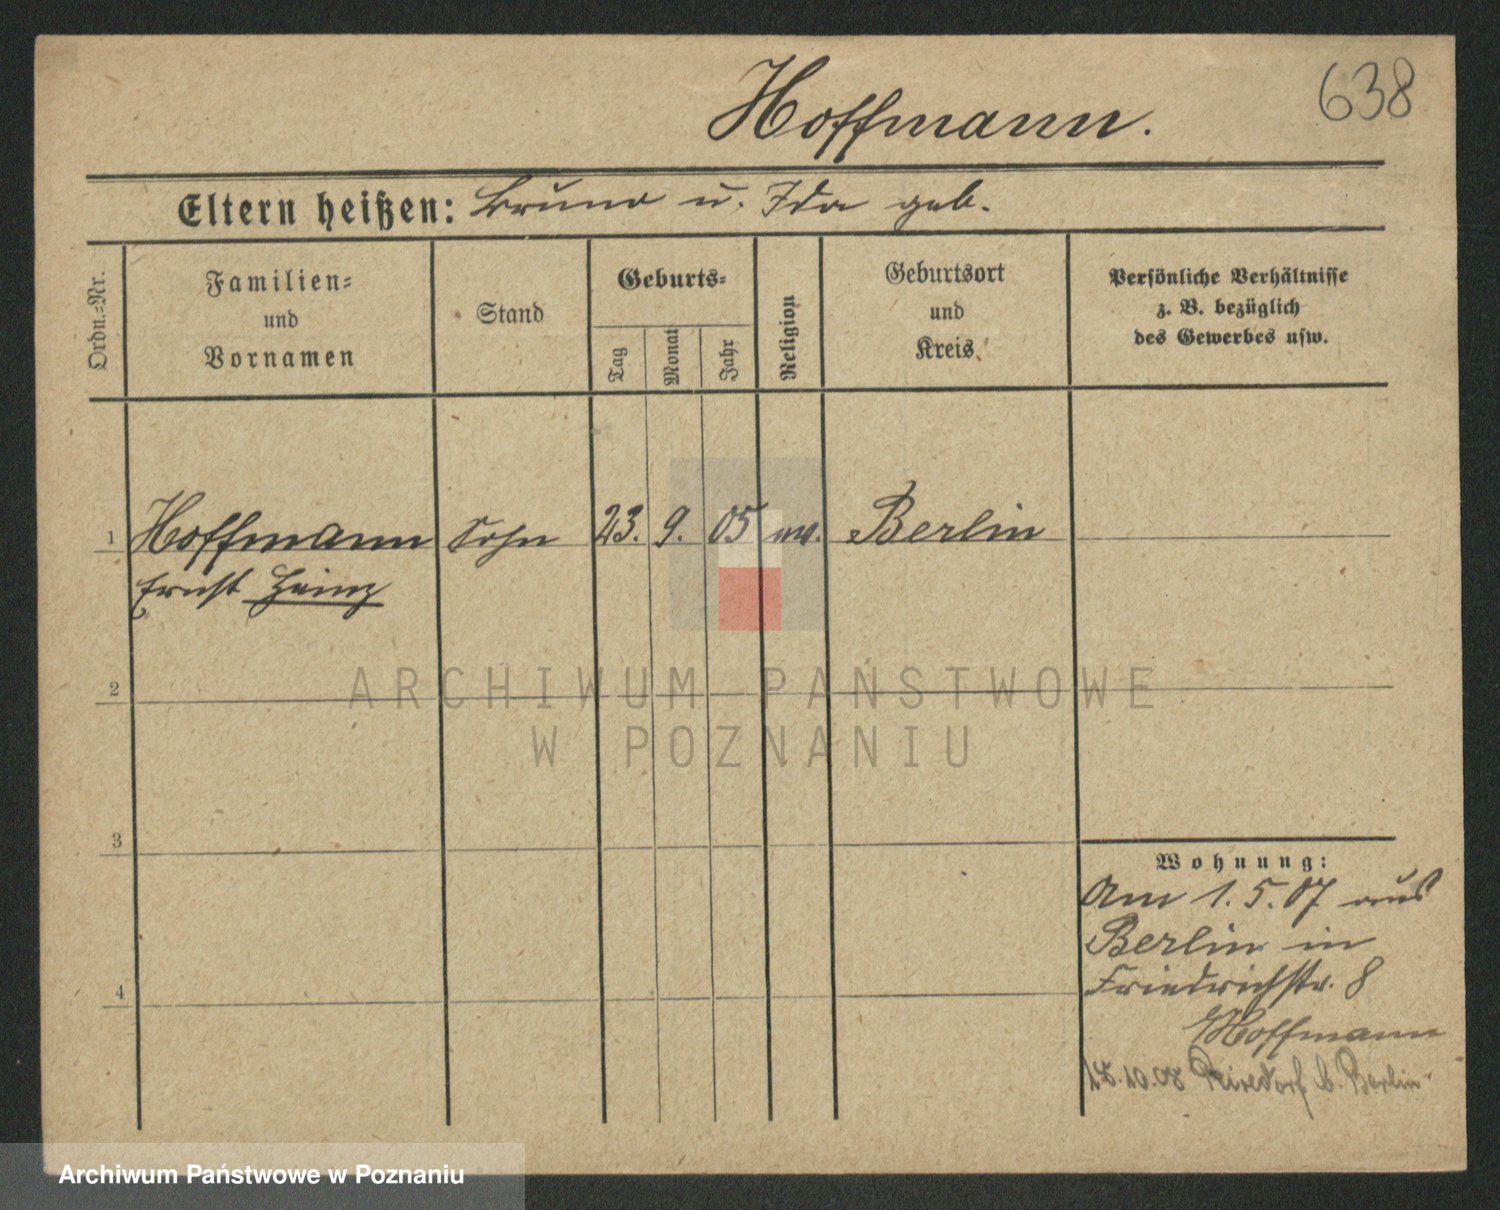 Hoffmann.
638
Eltern heißen: Bruno u. Ida geb.
Ordn.-Nr.
Familien-
und
Vornamen
Stand
Geburts-
Tag
Monat
Jahr
Religion
Geburtsort
und
Kreis
Persönliche Verhältnisse
z. B. bezüglich
des Gewerbes usw.
1 Hoffmann Sohn 23. 9. 05 ev. Berlin
Ernst Heinz
2
3
4
Wohnung:
Am 1. 5. 07 aus
Berlin in
Friedrichstr. 8
Hoffmann
10.08 b. Berlin
ARCHIWUM PAŃSTWOWE
W POZNANIU
Archiwum Państwowe w Poznaniu